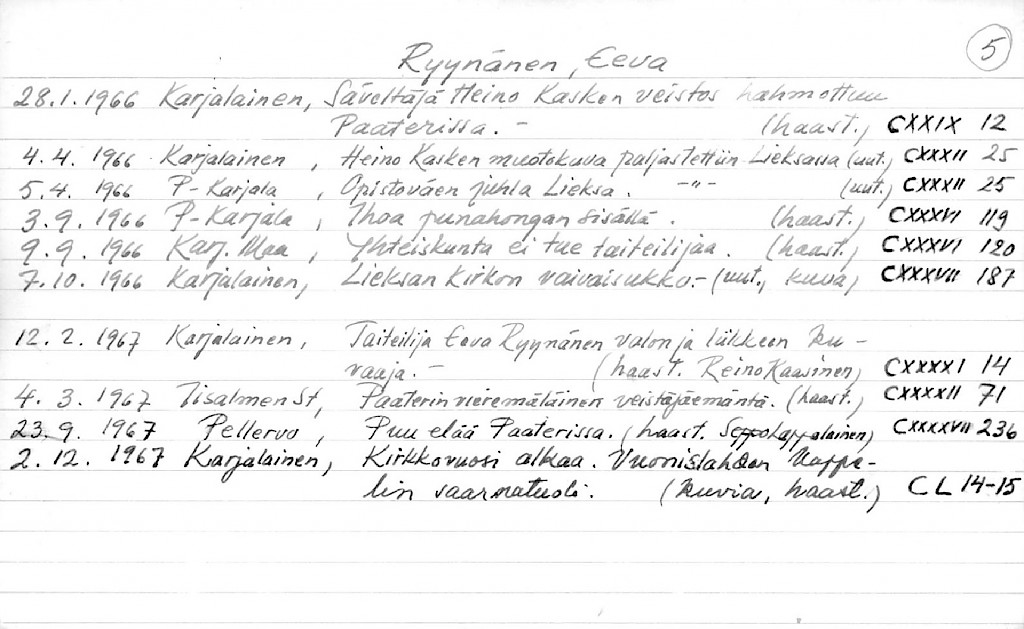 5
Ryynänen, Eeva
28.1.1966 Karjalainen, Säveltäjä Heino Kasken veistos hahmottuu
Paaterissa. - (haast.) CXXIX 12
4.4. 1966 Karjalainen, Heino Kasken muotokuva paljastettiin Lieksassa (uut.) CXXXII 25
5.4. 1966 P-Karjala, Opistoväen juhla Lieksa. -"- (uut.) CXXXII 25
3.9.1966 P-Karjala, Ihoa punahongan sisällä. (haast.) CXXXVI 119
9.9.1966 Karj. Maa, Yhteiskunta ei tue taiteilijaa. (haast.) CXXXVI 120
7.10.1966 Karjalainen, Lieksan kirkon vaivaisukko.- (uut., kuva) CXXXVII 187
12.2.1967 Karjalainen, Taiteilija Eeva Ryynänen valon ja liikkeen ku-
vaaja. - (haast. Reino Kaasinen) CXXXXI 14
4.3.1967 Iisalmen St, Paaterin vieremäläinen veistäjäemäntä. (haast.) CXXXXII 71
23.9.1967 Pellervo, Puu elää Paaterissa. (haast. Seppo Lappalainen) CXXXXVII 236
2.12.1967 Karjalainen, Kirkkovuosi alkaa. Vuonislahden kappe-
lin saarnatuoli. (kuvia, haast.) CL 14-15